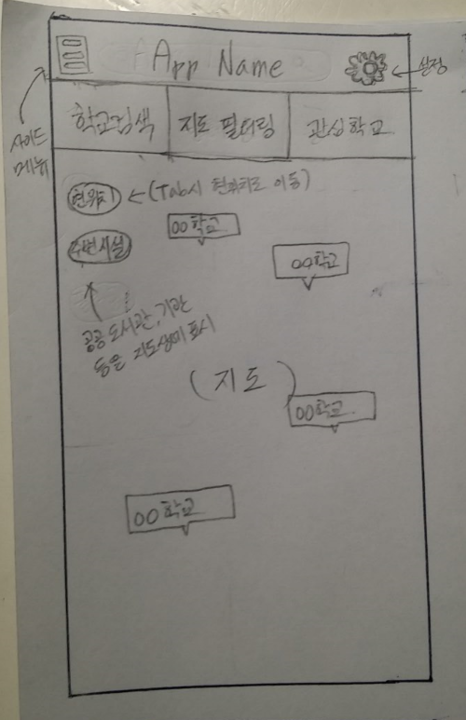 App Name
설정
사이드
메뉴
학교검색
지도 필터링
관심학교
현위치
(Tab시 현위치로 이동)
주변시설
공공 도서관, 기관
등을 지도상에 표시
00학교
00학교
(지도)
00학교
00학교